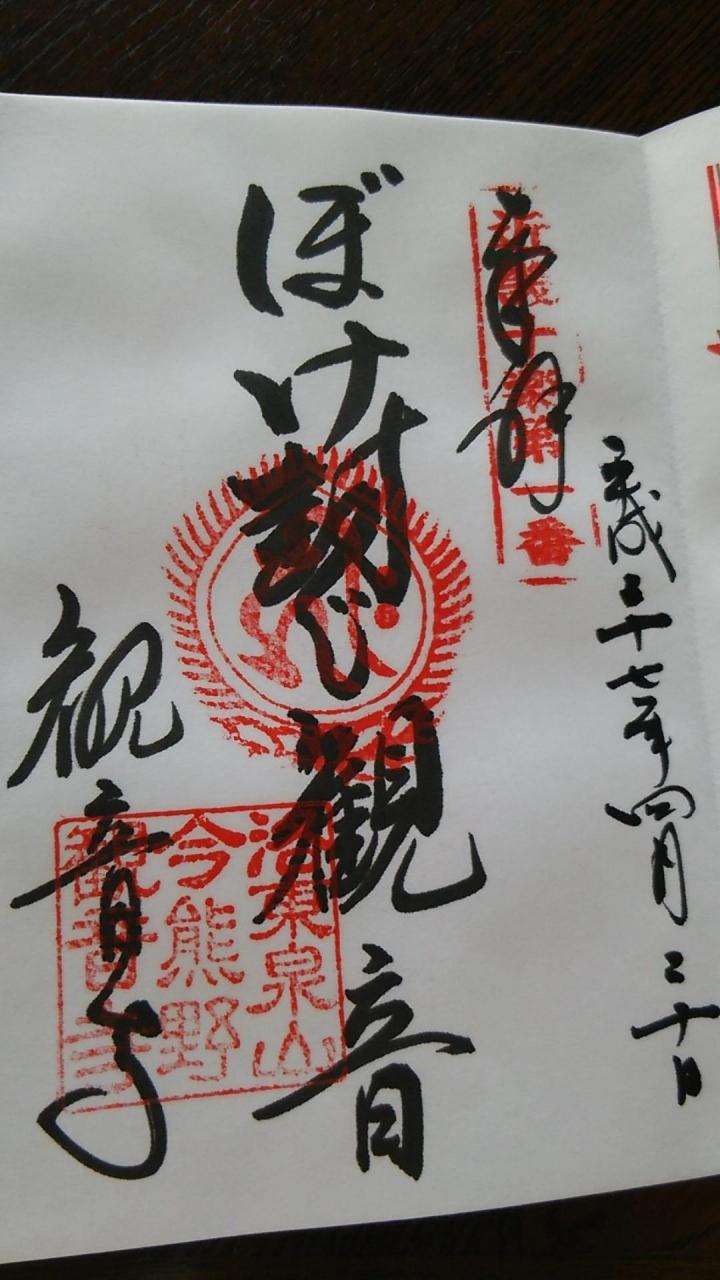 平成二十七年四月二十日
奉拝
近畿十楽第一番
ぼけ封じ観音
洛東泉山
今熊野
観音寺
観音寺